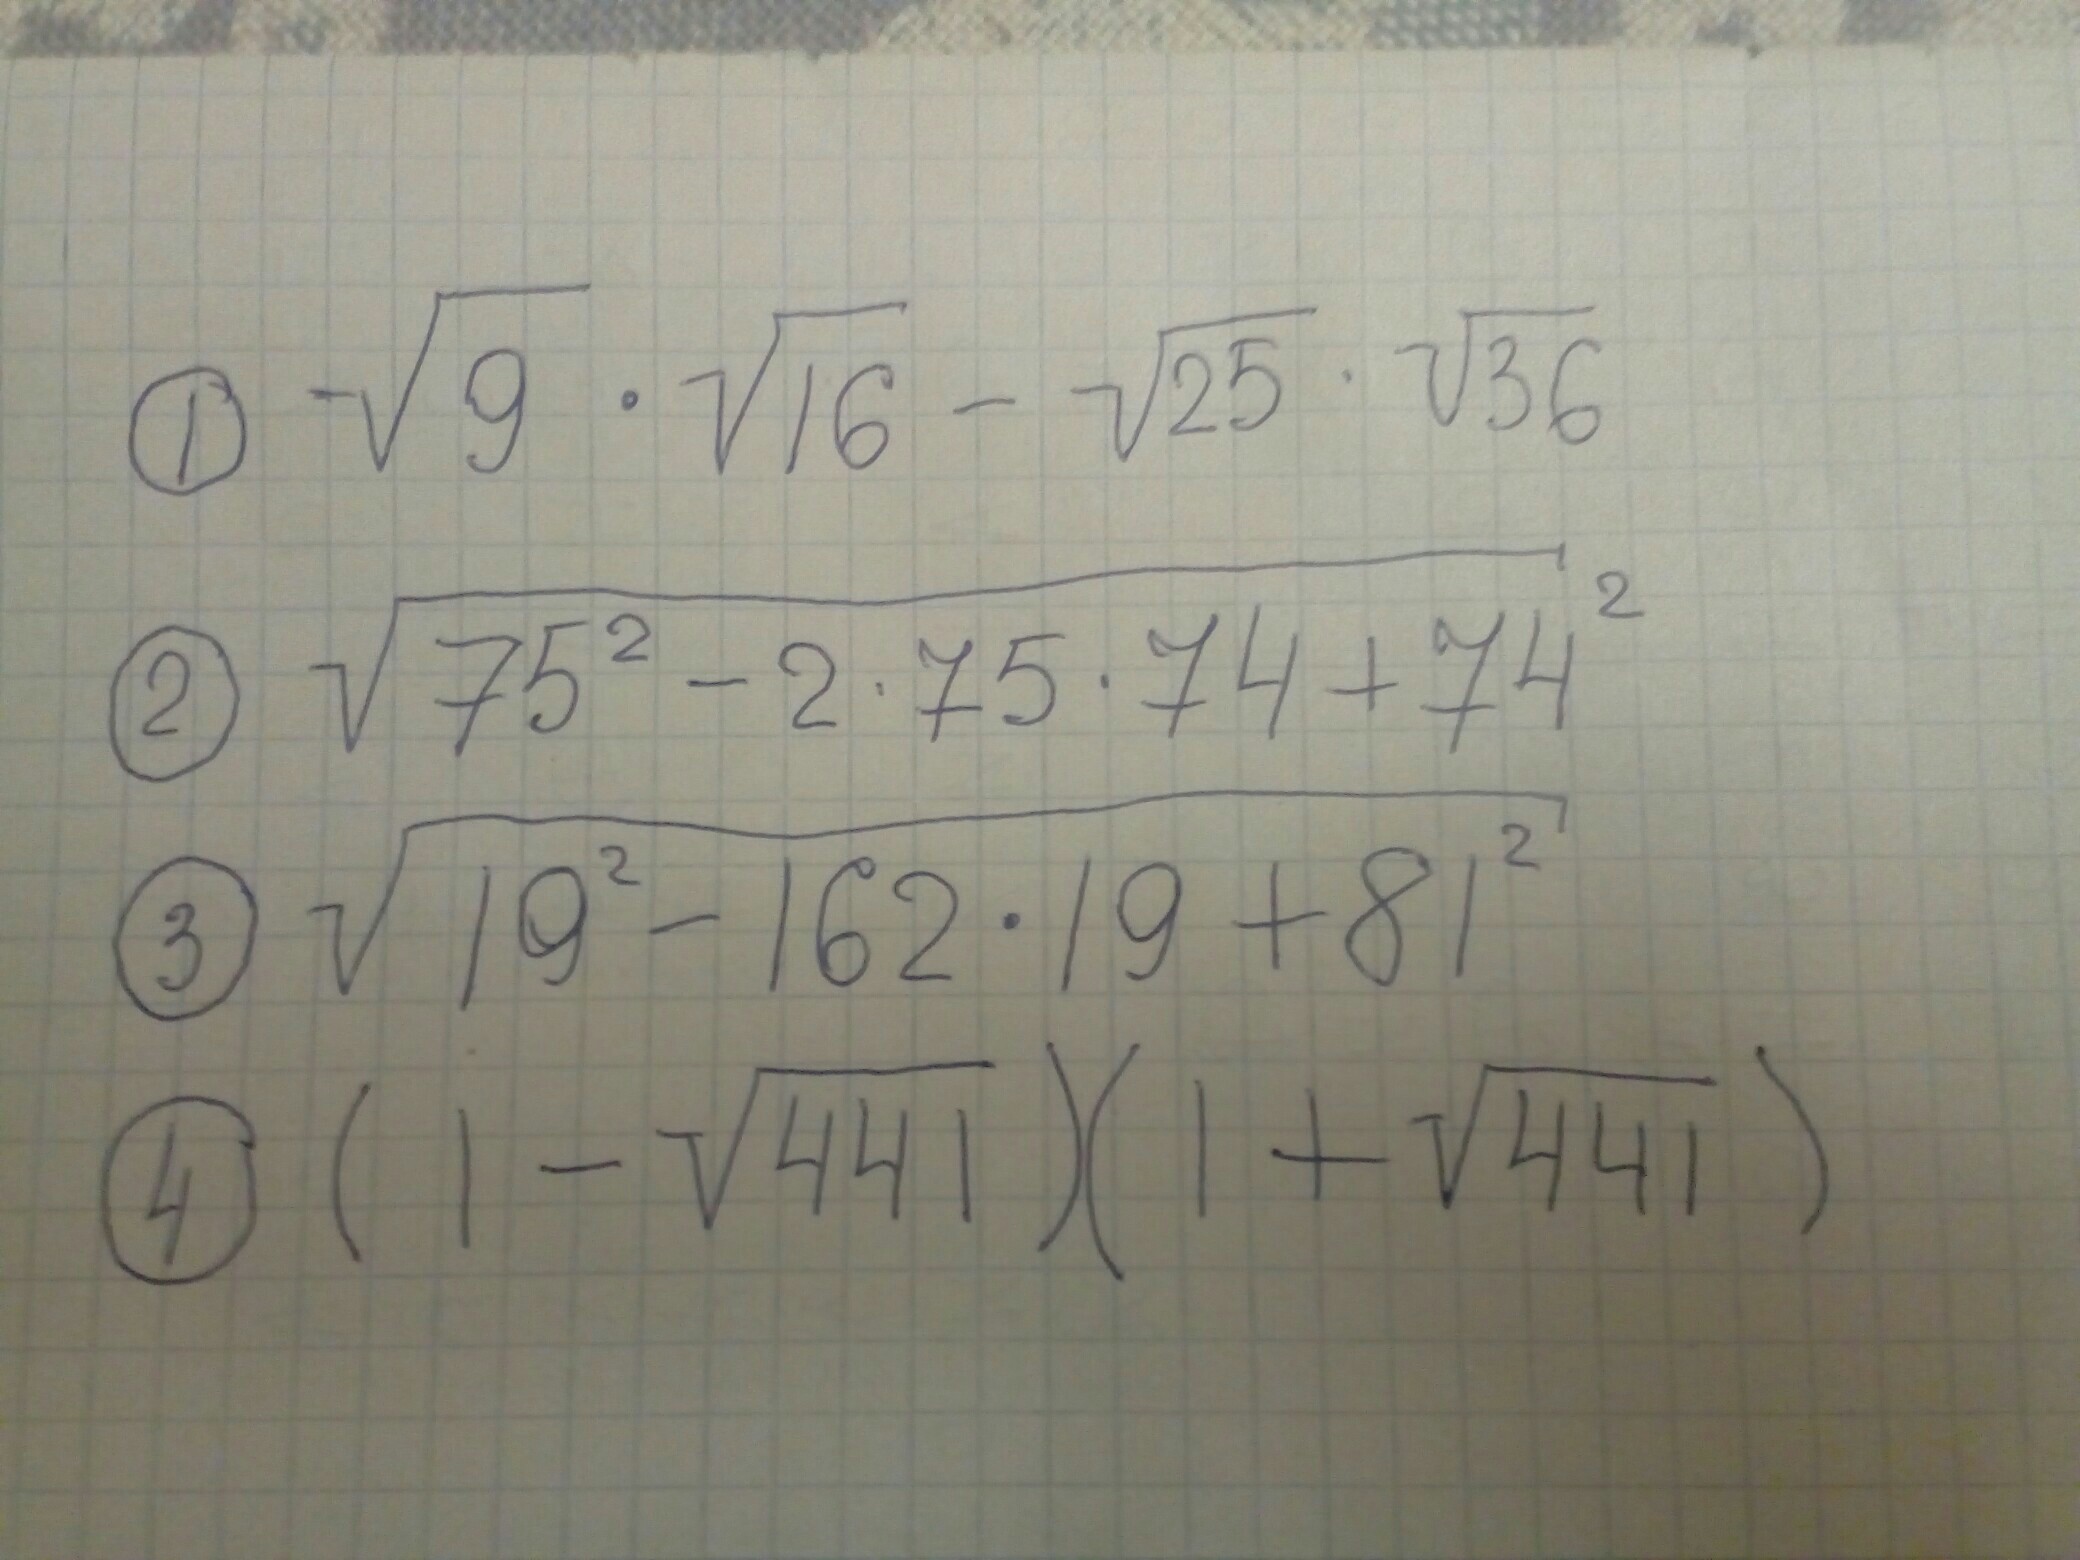 ① √9 · √16 - √25 · √36
② √(75² - 2·75·74 + 74²)
③ √(19² - 162·19 + 81²)
④ (1 - √441)(1 + √441)